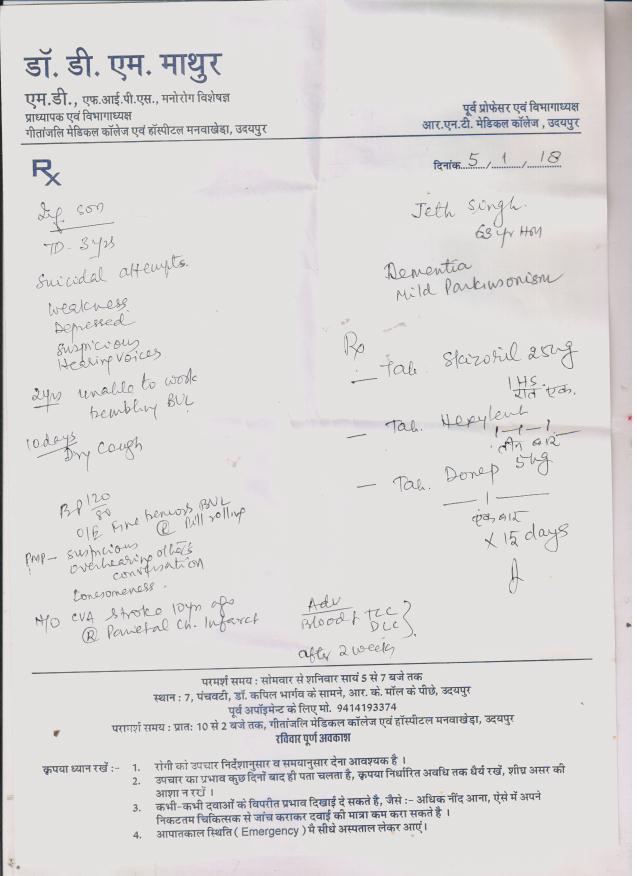 डॉ. डी. एम. माथुर
एम.डी., एफ.आई.पी.एस., मनोरोग विशेषज्ञ
प्राध्यापक एवं विभागाध्यक्ष
गीतांजलि मेडिकल कॉलेज एवं हॉस्पीटल मनवाखेड़ा, उदयपुर
पूर्व प्रोफेसर एवं विभागाध्यक्ष
आर.एन.टी. मेडिकल कॉलेज , उदयपुर
Rx
दिनांक 5/1/18
son
TD - 3yrs
Suicidal attempts.
Weakness
Depressed
Suspicious
Hearing Voices
2yrs unable to work
trembling BUL
10 days
Dry Cough
BP 120/80
O/E Fine tremors BUL
Ⓡ Pill rolling
PMP - suspicious
overhearing others
conversation
Lonesomeness.
H/O CVA stroke 10yrs ago
Ⓡ Parietal Ch. Infarct
Jeth Singh.
63 yr
Dementia
Mild Parkinsonism
Rx
— Tab. Skizoril 25mg
1 HS
रात एक.
— Tab. Hexylent
1—1—1
तीन बार
— Tab. Donep 5mg
— 1 —
एक बार
x 15 days
Adv
Blood f TLC
DLC
after 2 weeks
परामर्श समय : सोमवार से शनिवार सायं 5 से 7 बजे तक
स्थान : 7, पंचवटी, डॉ. कपिल भार्गव के सामने, आर. के. मॉल के पीछे, उदयपुर
पूर्व अपॉइमेन्ट के लिए मो. 9414193374
परामर्श समय : प्रातः 10 से 2 बजे तक, गीतांजलि मेडिकल कॉलेज एवं हॉस्पीटल मनवाखेड़ा, उदयपुर
रविवार पूर्ण अवकाश
कृपया ध्यान रखें :- 1. रोगी को उपचार निर्देशानुसार व समयानुसार देना आवश्यक है ।
2. उपचार का प्रभाव कुछ दिनों बाद ही पता चलता है, कृपया निर्धारित अवधि तक धैर्य रखें, शीघ्र असर की
आशा न रखें ।
3. कभी-कभी दवाओं के विपरीत प्रभाव दिखाई दे सकते है, जैसे :- अधिक नींद आना, ऐसे में अपने
निकटतम चिकित्सक से जांच कराकर दवाई की मात्रा कम करा सकते है ।
4. आपातकाल स्थिति ( Emergency ) मै सीधे अस्पताल लेकर आएं।